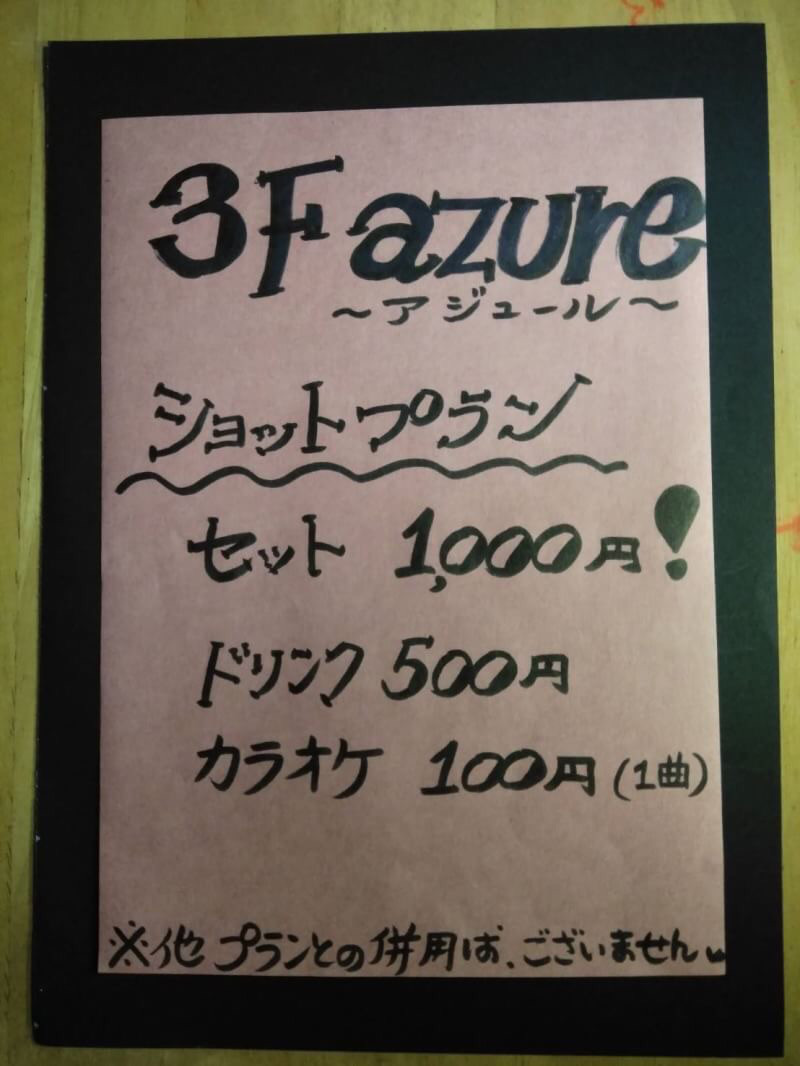 3F azure
～アジュール～
ショットプラン
セット 1,000円!
ドリンク 500円
カラオケ 100円(1曲)
※他プランとの併用は、ございません